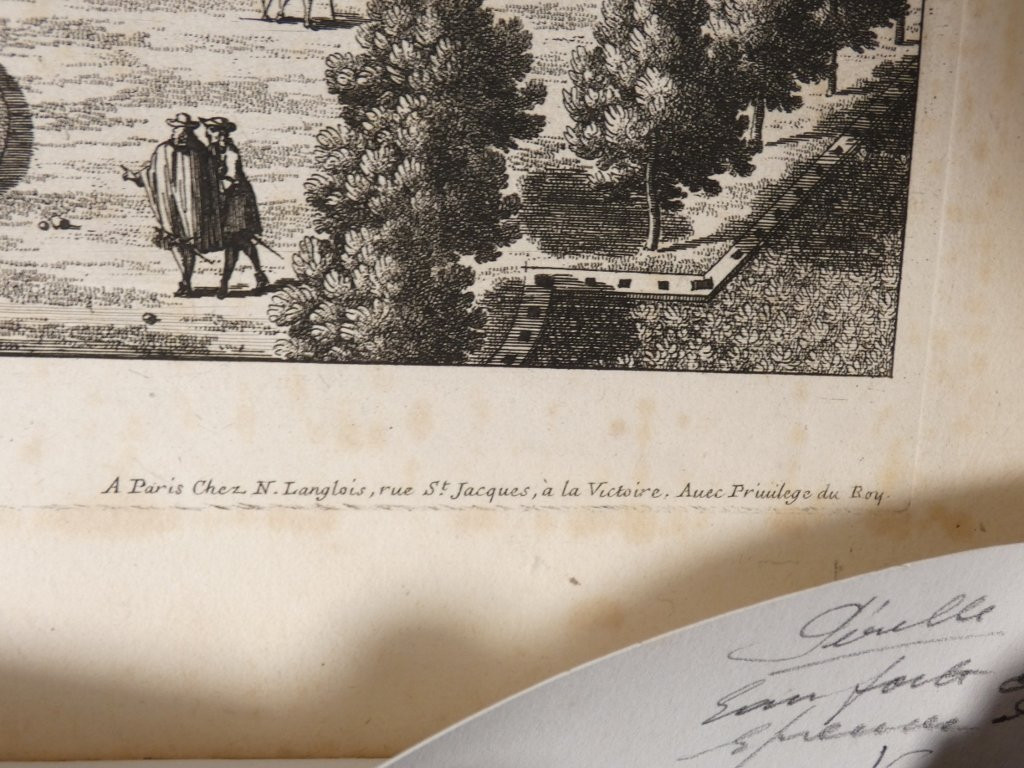 A Paris Chez N. Langlois, rue St. Jacques, à la Victoire. Auec Priuilege du Roy.
Pérelle
Eau forte
Epreuve